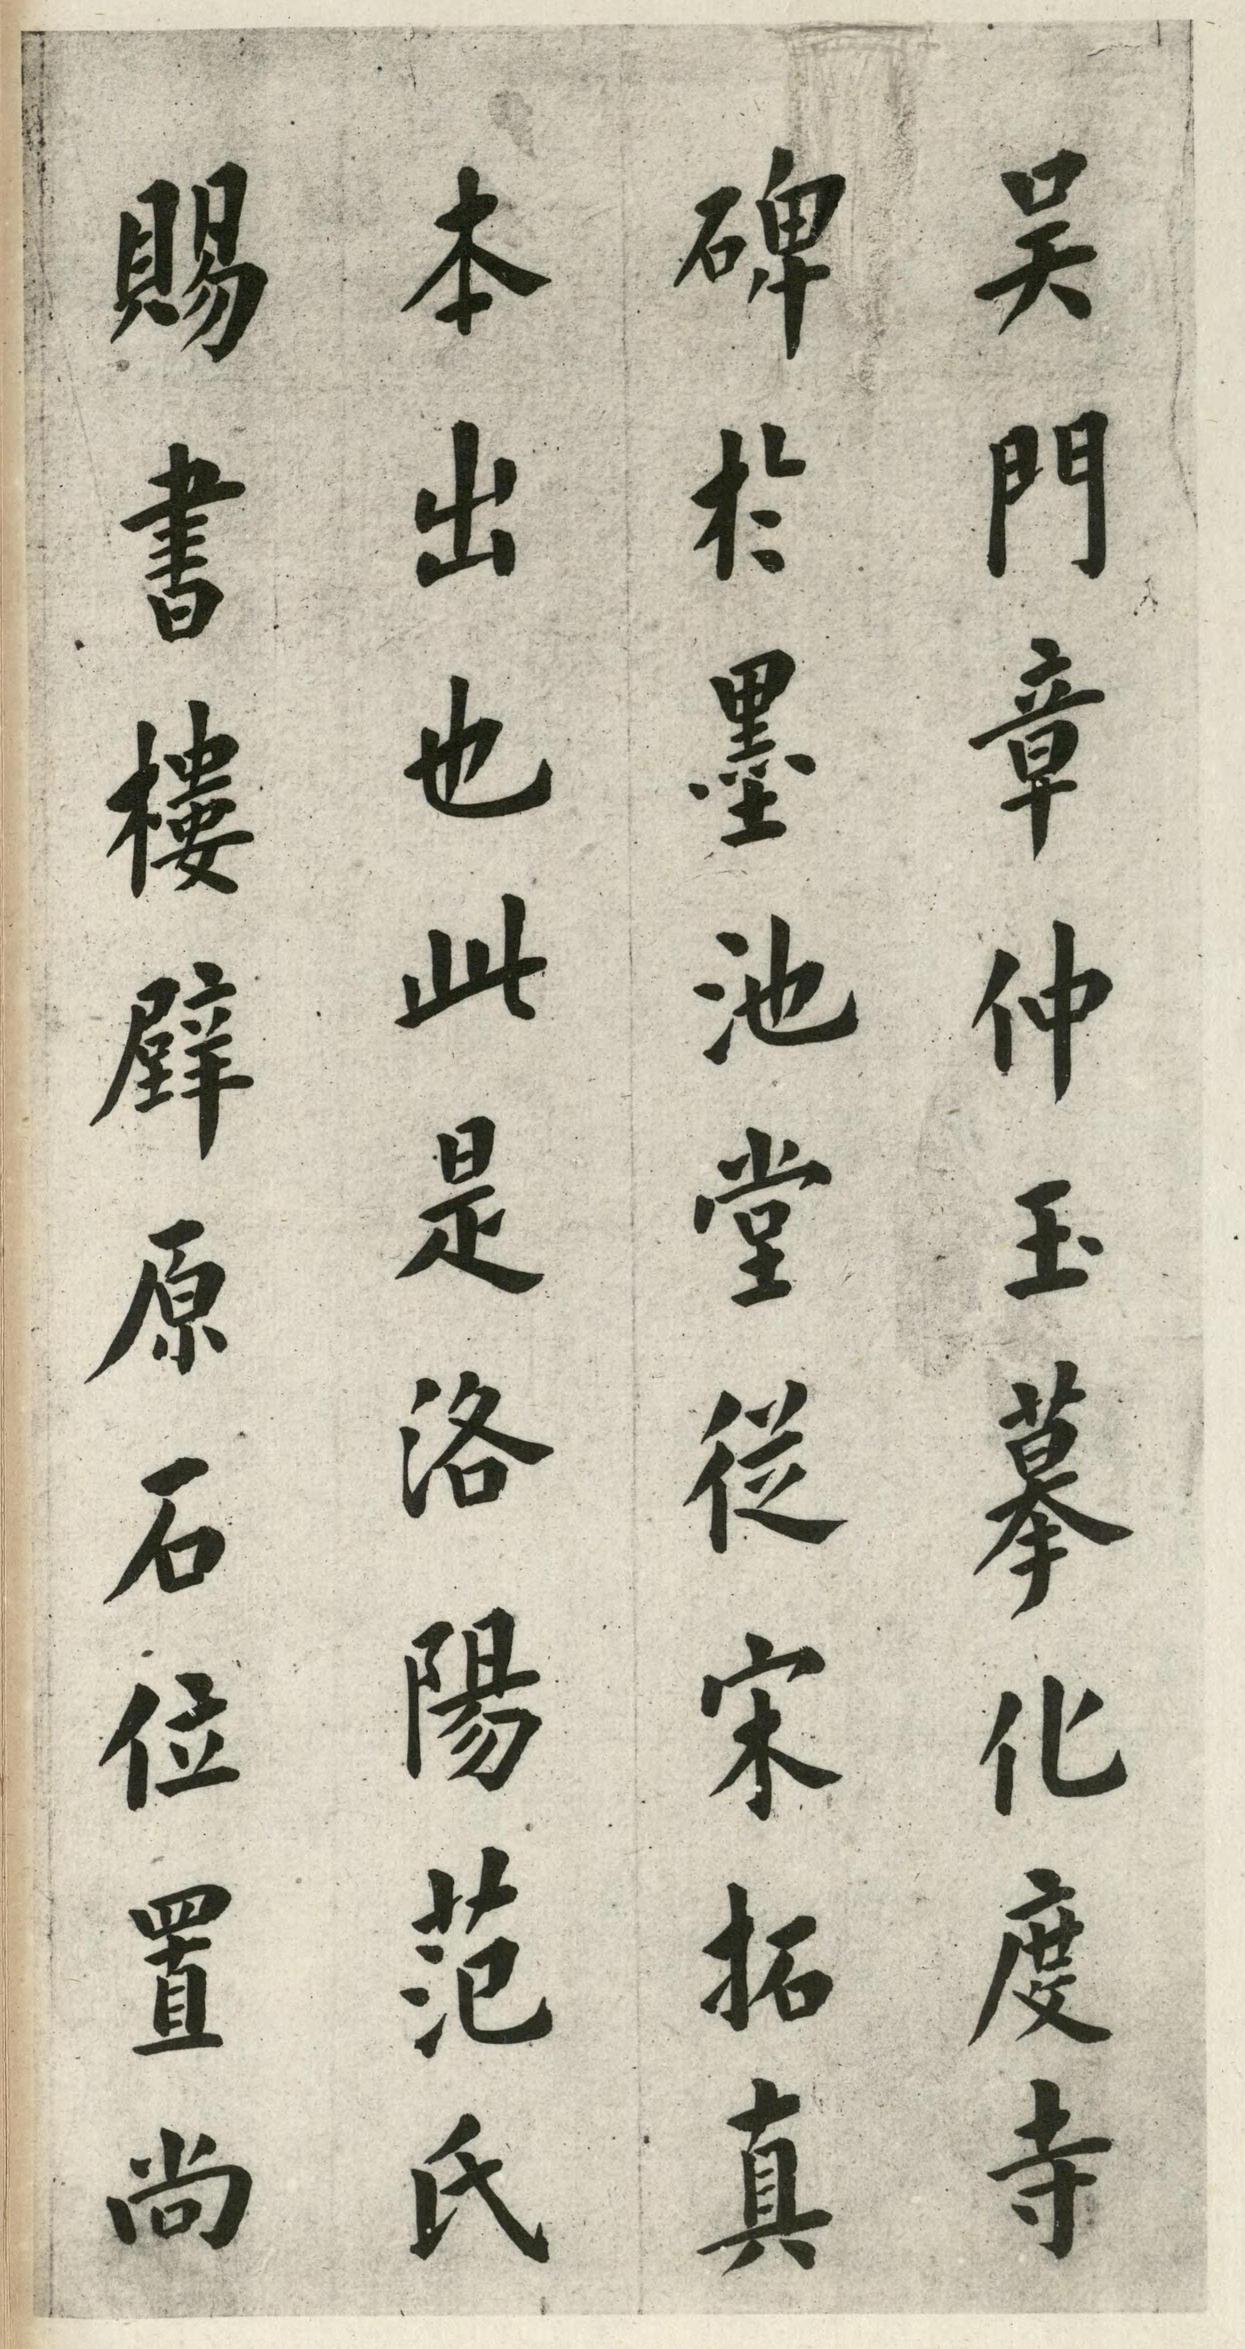 吴門章仲玉摹化度寺
碑於墨池堂從宋拓真
本出也此是洛陽范氏
賜書樓壁原石位置尚